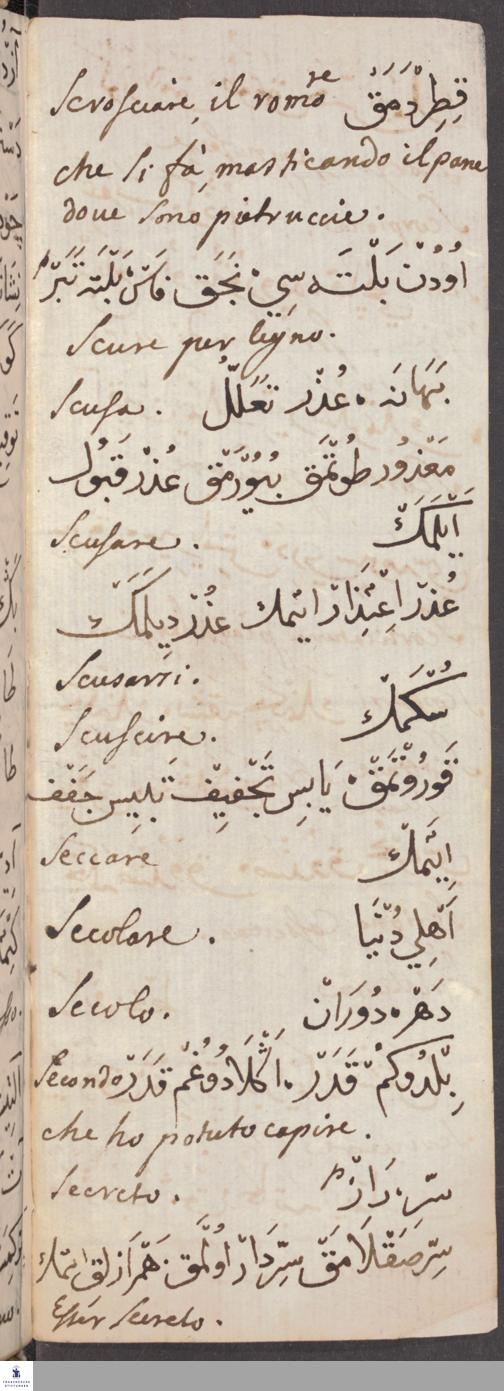 Scrosciare, il romore قِطِرْدَمَقْ
che si fà, masticando il pane
doue sono pietruccie.
اُودُنْ بَلْتَه سِي نَجَقْ فَاسْ بَلْتَه تَبَرْ
Scure per legno.
Scusa. بَهَانَه عُذْر تَعَلُّلْ
مَعْذُور طُوتْمَق بُيُورْمَق عُذْر قَبُول
Scusare. اَيْلَمَكْ
عُذْر اِعْتِذَارْ اتمك عُذْر دِيلَمَكْ
Scusarsi.
Scuscire. سُكْمَكْ
قُورُوتْمَقْ يَابِس تَجْفِيفْ تَيْبِيس جَفَف
Seccare اِيتْمَكْ
Secolare. اَهْلِي دُنْيَا
Secolo. دَهْرْ دُورَانْ
Secondo بِلْدُوكُمْ قَدَرْ اَكْلَادُوغُمْ قَدَرْ
che ho potuto capire.
Secreto. سِرّ رَازْ
سِرّ صَقْلَامَقْ سِرّدَارْ اُولْمَق هَمْرَازلِق اتمك
Esser secreto.